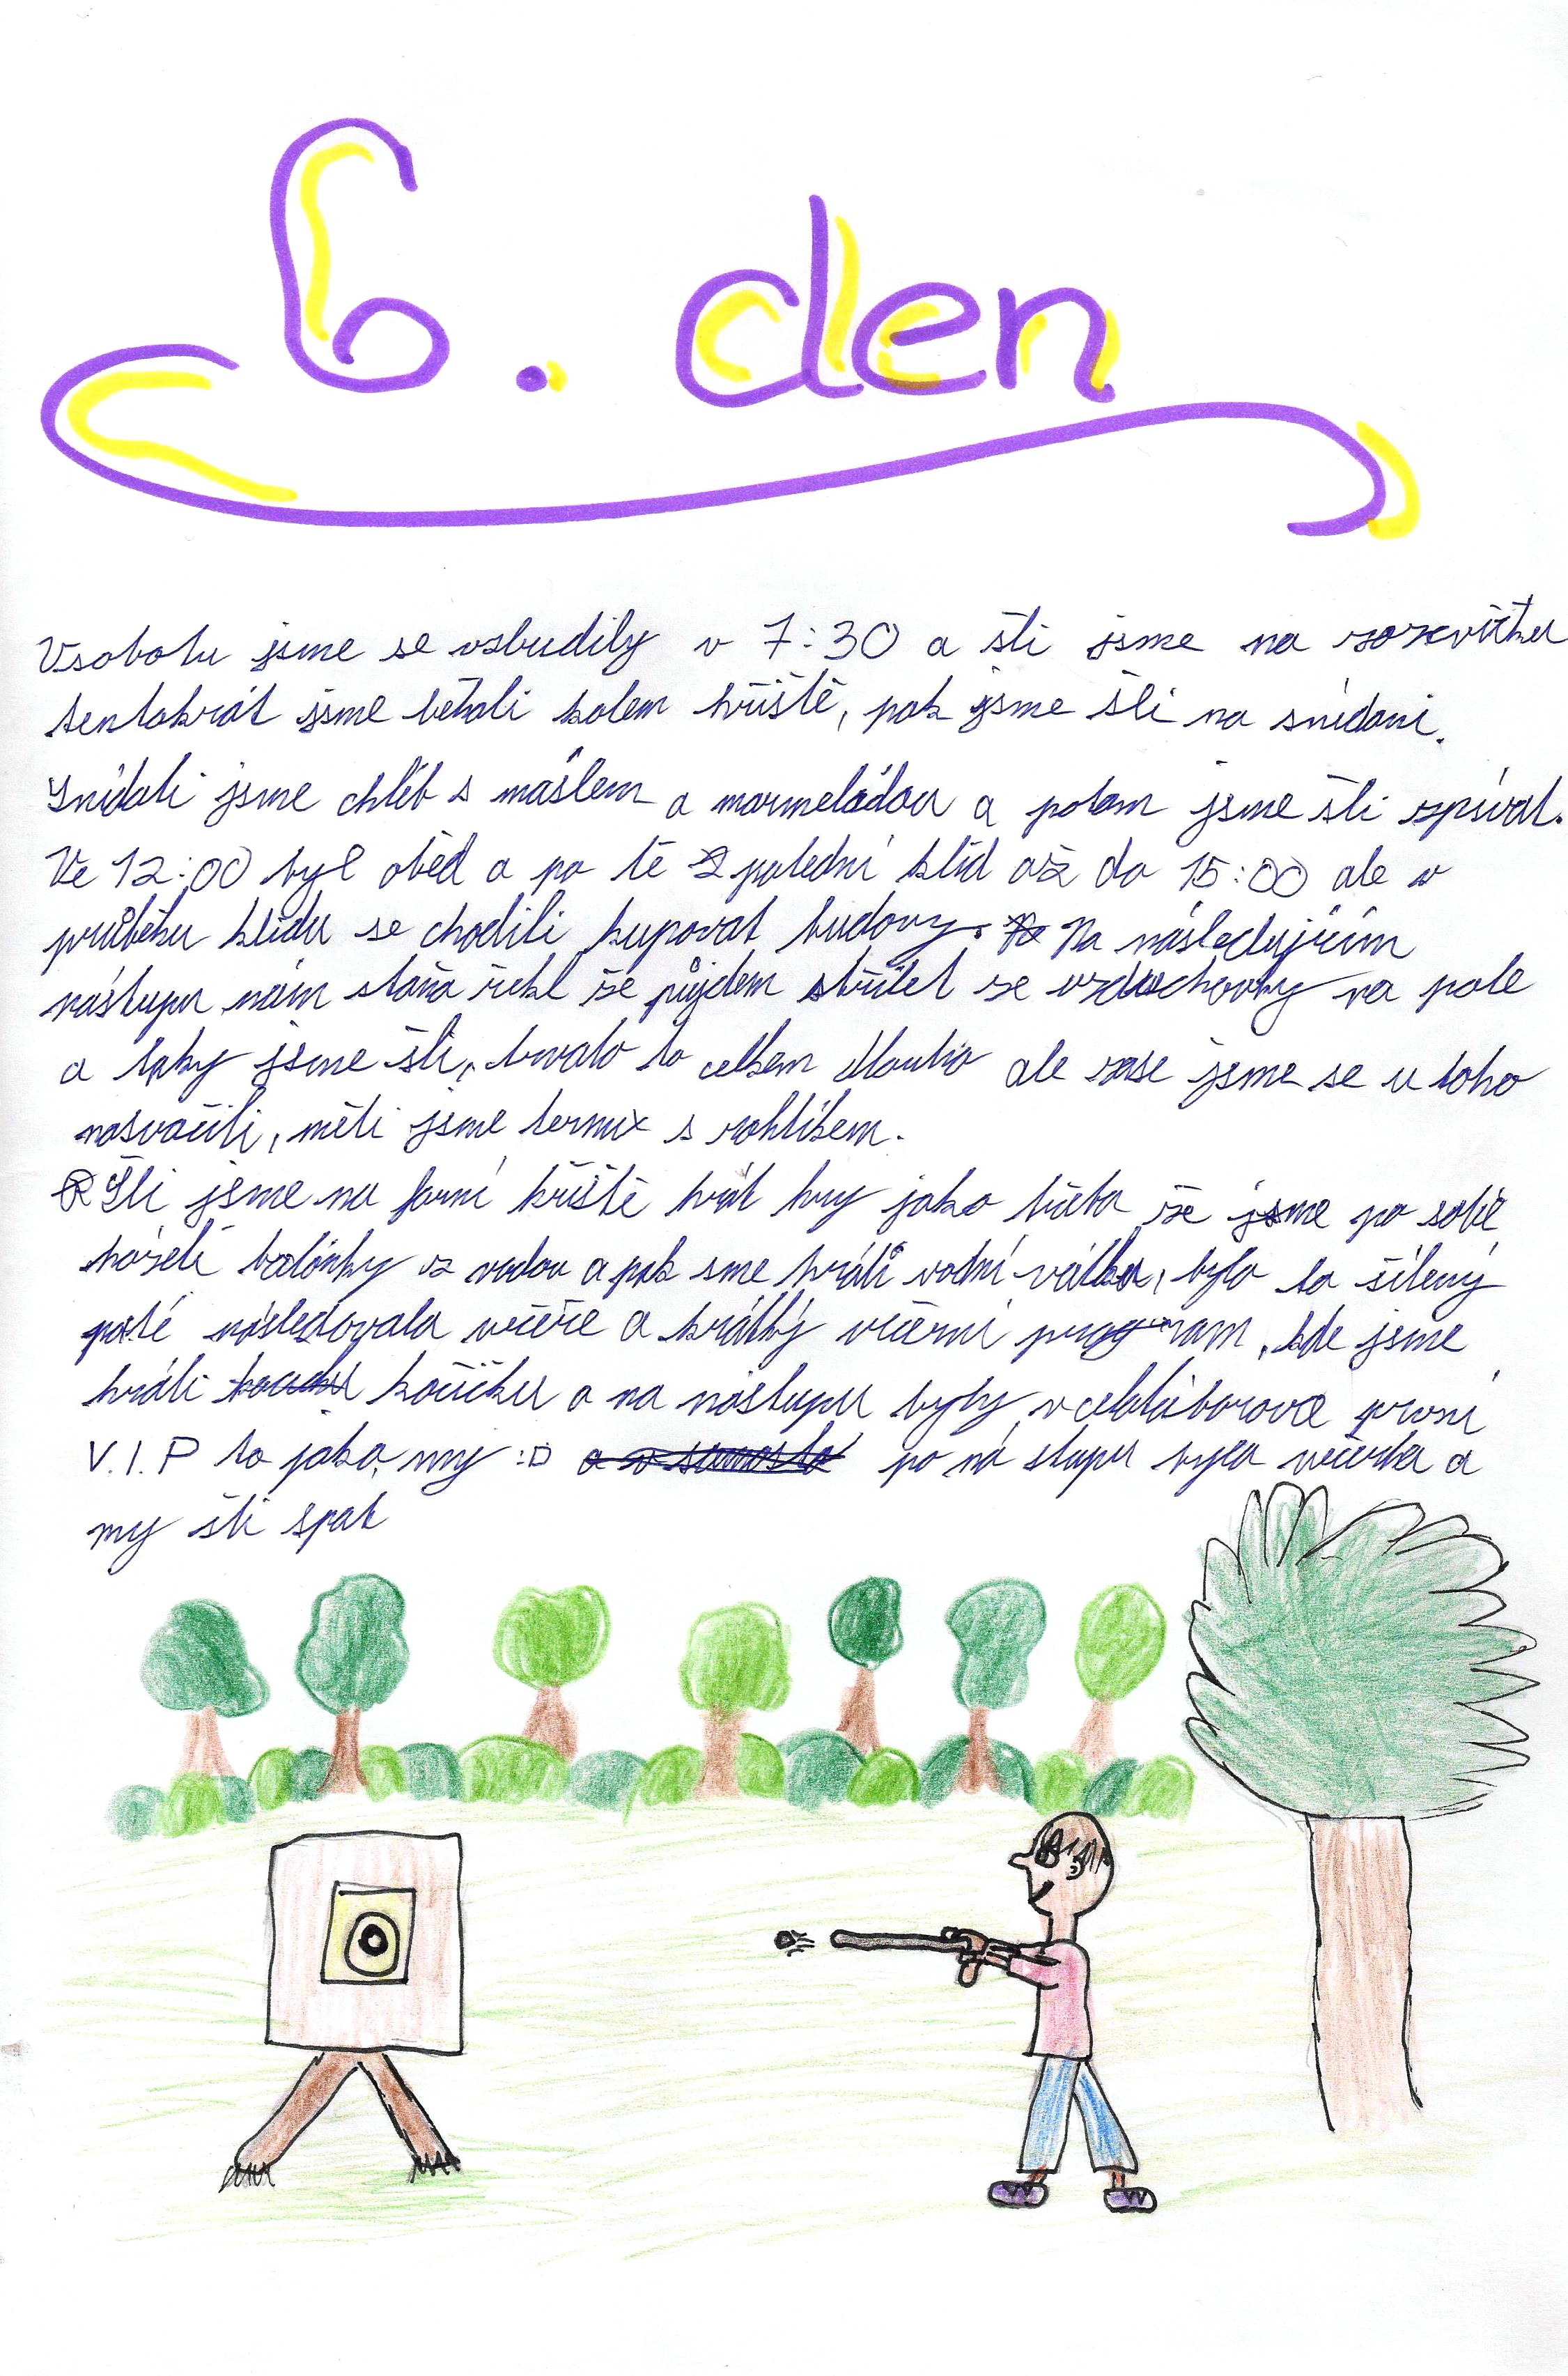 6. den
Vsobotu jsme se vzbudily v 7:30 a šli jsme na rozcvičku
tentokrát jsme běhali kolem hřiště, pak jsme šli na snídani.
Snídali jsme chléb s máslem a marmeládou a potom jsme šli zpívat.
Ve 12:00 byl oběd a po té polední klid až do 15:00 ale v
průběhu klidu se chodili kupovat budovy. Na následujícím
nástupu nám stáňa řekl že půjdem střílet ze vzduchovky na pole
a taky jsme šli, trvalo to celkem dlouho ale zase jsme se u toho
nasvačili, měli jsme termix s rohlíkem.
Šli jsme na farní hřiště hrát hry jako třeba že jsme po sobě
házeli balónky z vodou a pak sme hráli vodní válku, bylo to šílený
poté následovala večeře a krátký večerní program, kde jsme
hráli kočičku a na nástupu byly v celotáborovce první
V.I.P to jako my :D po ná stupu byla večerka a
my šli spat